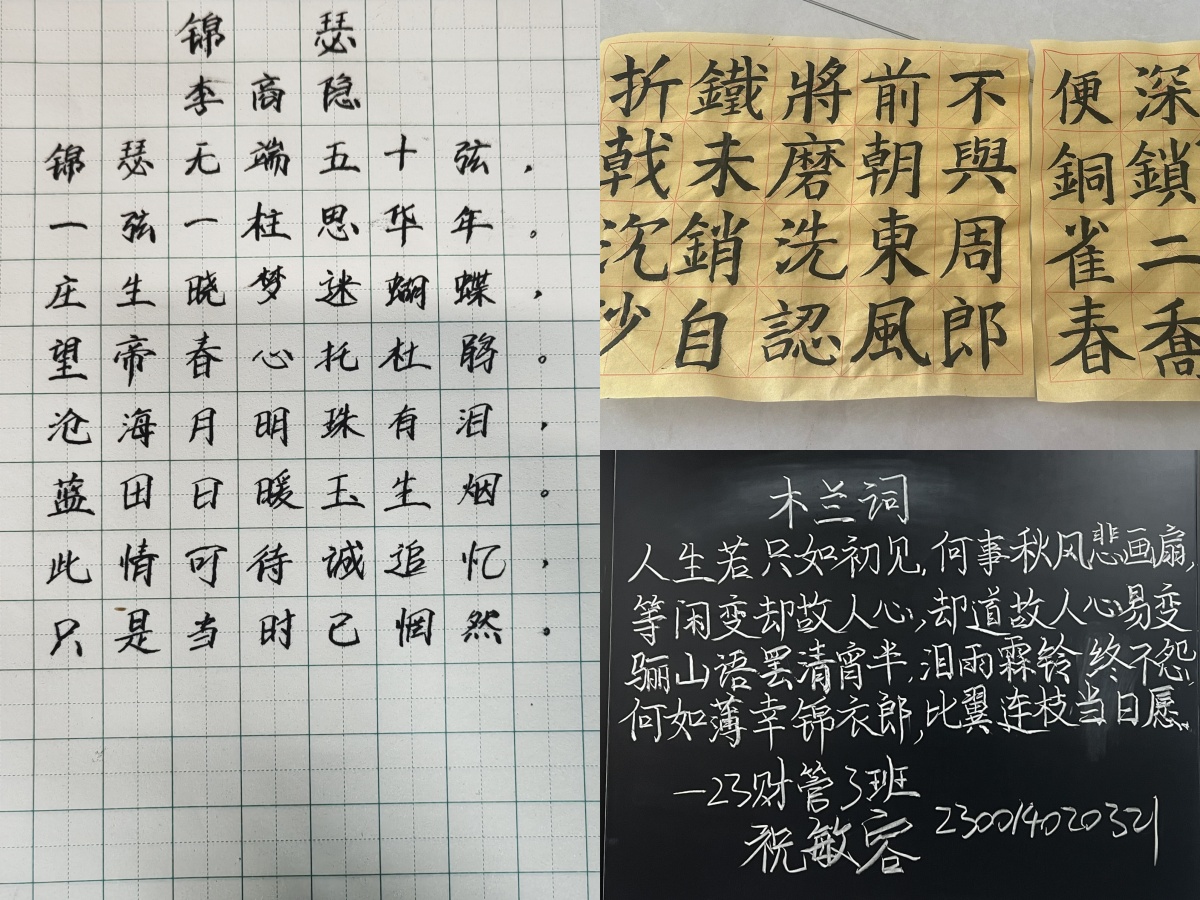 锦瑟
李商隐
锦瑟无端五十弦，
一弦一柱思华年。
庄生晓梦迷蝴蝶，
望帝春心托杜鹃。
沧海月明珠有泪，
蓝田日暖玉生烟。
此情可待诚追忆，
只是当时已惘然。
折戟沉沙
鐵未銷自
將磨洗認
前朝東風
不與周郎
便銅雀春
深鎖二喬
木兰词
人生若只如初见,何事秋风悲画扇,
等闲变却故人心,却道故人心易变
骊山语罢清宵半,泪雨霖铃终不怨,
何如薄幸锦衣郎,比翼连枝当日愿。
—23财管3班
祝敏容 230014020321